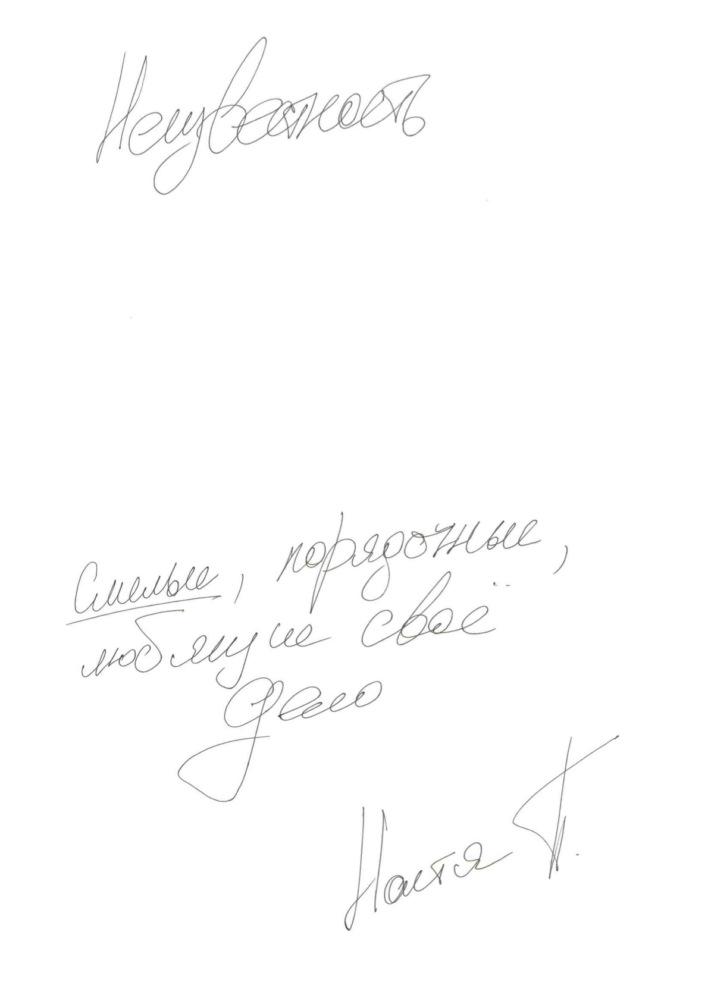 Неизвестность
Смелые, порядочные,
любящие своё
дело
Настя